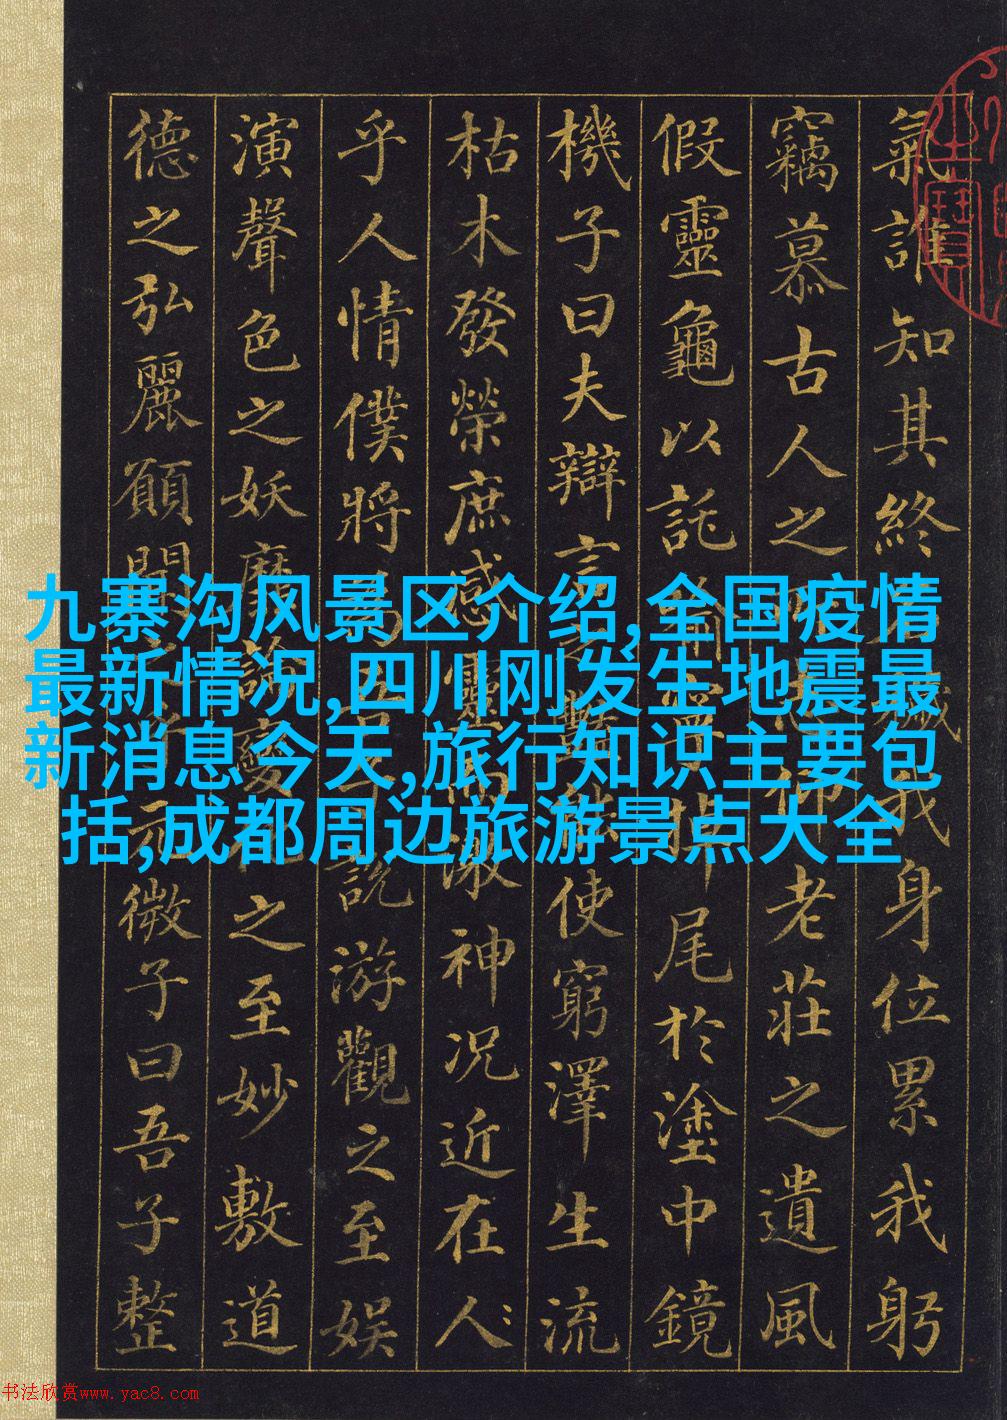 氣誰知其終名穢我身位累我躬
竊慕古人之所志仰老莊之遺風
假靈龜以託喻寧掉尾於塗中鏡
機子曰夫辯言之艷能使窮澤生流
枯木發榮庶感靈而激神況近在人
乎人情僕將為吾子說游觀之至娛
演聲色之妖靡論變化之至妙敷道
德之弘麗願聞之乎玄微子曰吾子整
九寨沟风景区介绍,全国疫情
最新情况,四川刚发生地震最
新消息今天,旅行知识主要包
括,成都周边旅游景点大全
书法欣赏www.yac8.com